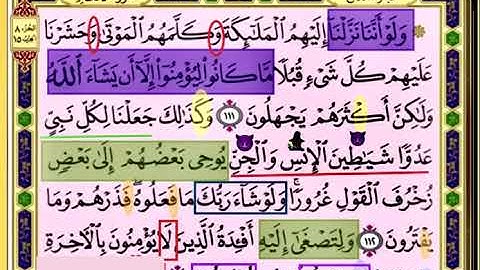 وَلَوْ أَنَّنَا نَزَّلْنَا إِلَيْهِمُ الْمَلَٰٓئِكَةَ وَكَلَّمَهُمُ الْمَوْتَىٰ وَحَشَرْنَا
عَلَيْهِمْ كُلَّ شَىْءٍ قُبُلًا مَّا كَانُوا۟ لِيُؤْمِنُوٓا۟ إِلَّآ أَن يَشَآءَ ٱللَّهُ
وَلَٰكِنَّ أَكْثَرَهُمْ يَجْهَلُونَ ١١١ وَكَذَٰلِكَ جَعَلْنَا لِكُلِّ نَبِىٍّ
عَدُوًّا شَيَٰطِينَ ٱلْإِنسِ وَٱلْجِنِّ يُوحِى بَعْضُهُمْ إِلَىٰ بَعْضٍ
زُخْرُفَ ٱلْقَوْلِ غُرُورًا وَلَوْ شَآءَ رَبُّكَ مَا فَعَلُوهُ فَذَرْهُمْ وَمَا
يَفْتَرُونَ ١١٢ وَلِتَصْغَىٰٓ إِلَيْهِ أَفْـِٔدَةُ ٱلَّذِينَ لَا يُؤْمِنُونَ بِٱلْءَاخِرَةِ